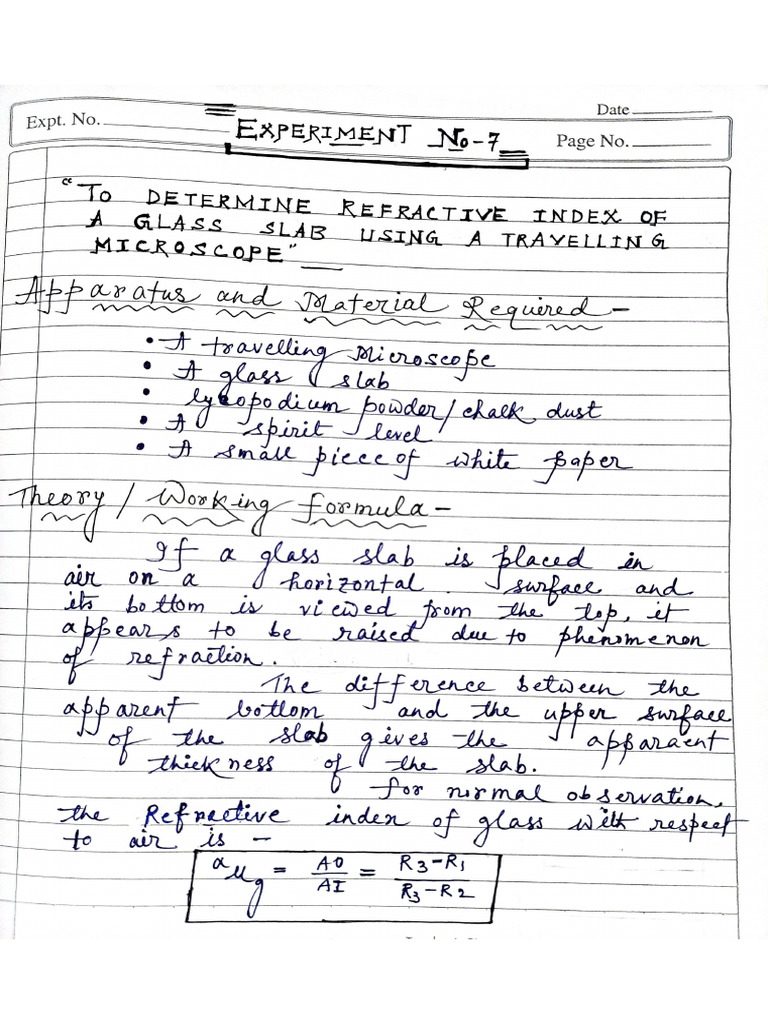 Date
Expt. No.
EXPERIMENT No-7
Page No.
"TO DETERMINE REFRACTIVE INDEX OF
A GLASS SLAB USING A TRAVELLING
MICROSCOPE"
Apparatus and Material Required -
• A travelling Microscope
• A glass slab
• lycopodium powder/chalk dust
• A spirit level
• A small piece of white paper
Theory / Working formula -
If a glass slab is placed in
air on a horizontal surface and
its bottom is viewed from the top, it
appears to be raised due to phenomenon
of refraction.
The difference between the
apparent bottom and the upper surface
of the slab gives the apparaent
thickness of the slab.
for normal observation,
the Refractive index of glass with respect
to air is -
ᵃμg = AO/AI = R3-R1/R3-R2